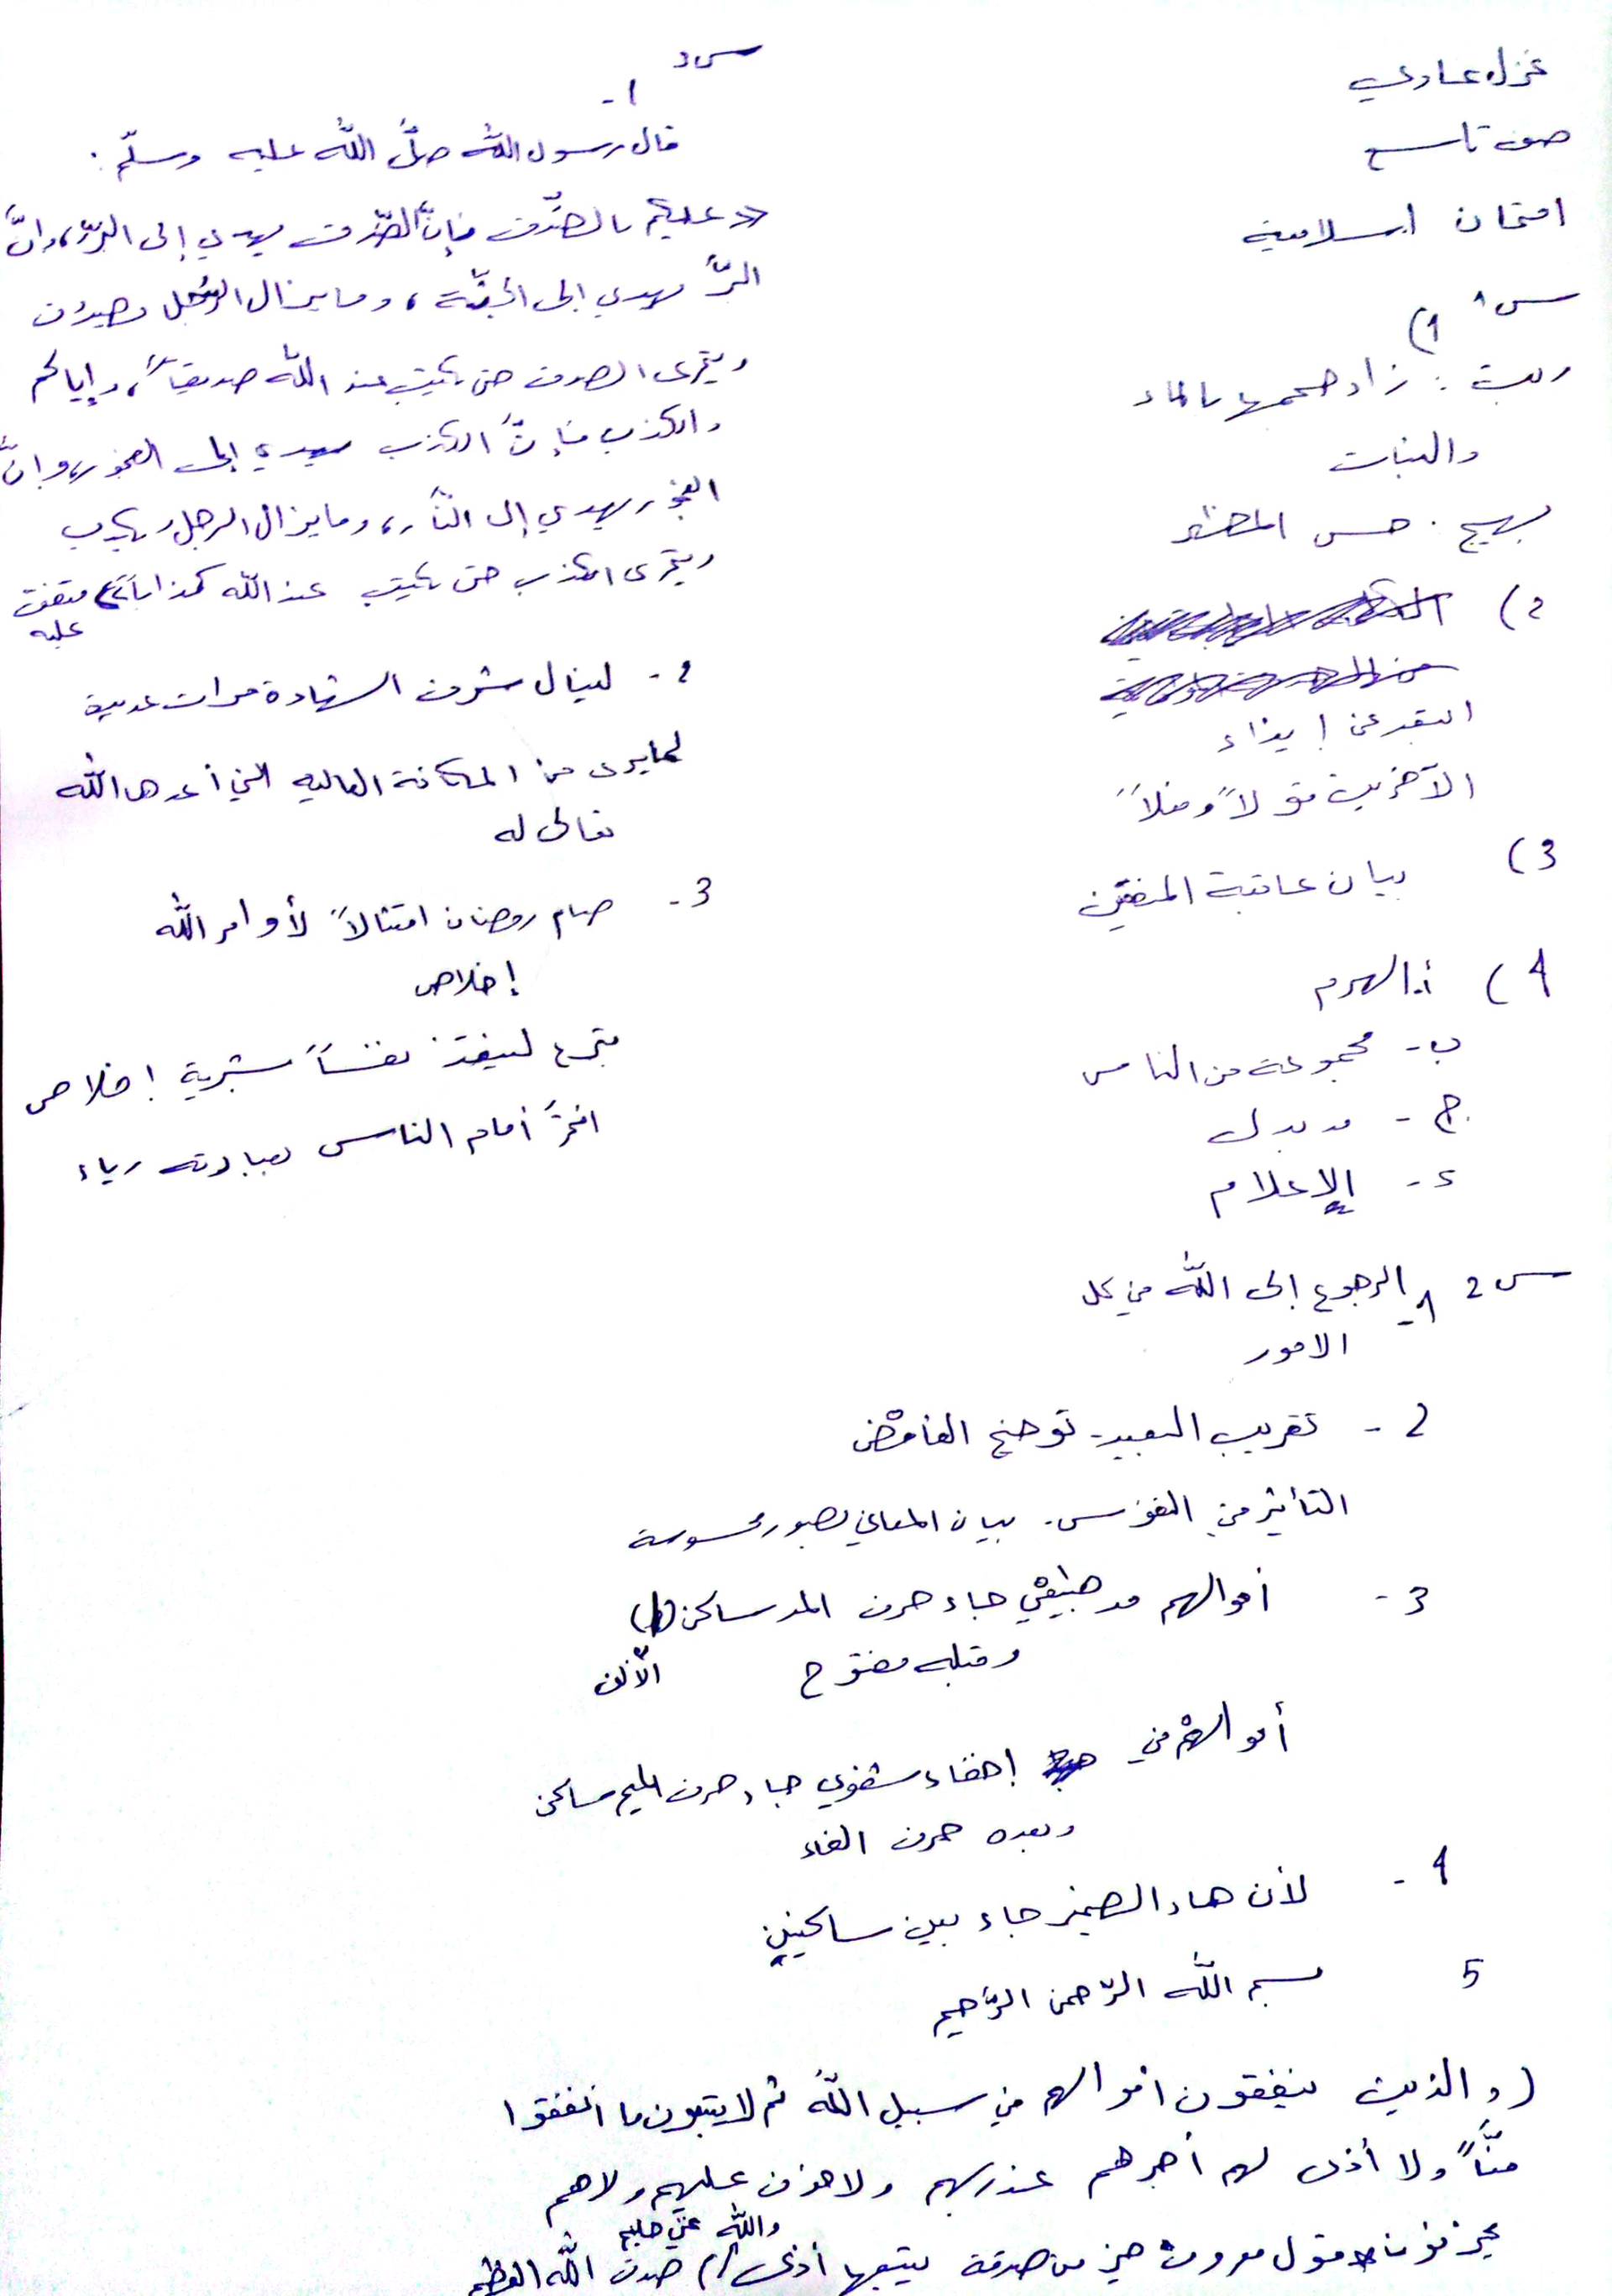 غزل عادي
صف تاسع
امتحان اسلامية
س1
1)
ربت : زاد حجمها بالماء
والنبات
بهيج . حسن المنظر
2)
البعد عن إيذاء
الآخرين قولاً وفعلاً
3) بيان عاقبة المنفقين
4) أ. الهرم
ب- مجموعة من الناس
ج - مد بدل
د - الإعلام
س2 1- الرجوع إلى الله في كل
الامور
2 - تقريب البعيد - توضح الغامض
التأثير في النفوس . بيان المعاني بصور محسوسة
3 - أموالهم مد طبيعي جاء حرف المد ساكن (ا)
وقبله مفتوح الألف
أموالهم في إخفاء شفوي جاء حرف الميم ساكن
وبعده حرف الفاء
4 - لأن هاء الضمير جاء بين ساكنين
5 بسم الله الرّحمن الرّحيم
(والذين ينفقون اموالهم في سبيل الله ثم لا يتبعون ما انفقوا
منّاً ولا أذى لهم أجرهم عند ربهم ولا خوف عليهم ولا هم
يحزنون قول معروف خير من صدقة يتبعها أذى والله غني حليم) صدق الله العظيم
س3
1-
قال رسول الله صلَّ الله عليه وسلّم :
«عليكم بالصّدق فإنَّ الصّدق يهدي إلى البرّ، وانَّ
البرَّ يهدي الى الجنّة ، وما يزال الرّجل يصدق
ويتحرى الصدق حتى يكتب عند الله صديقاً، وإياكم
والكذب فإنَّ الكذب يهدي إلى الفجور، وانَّ
الفجور يهدي إلى النَّار، وما يزال الرجل يكذب
ويتحرى الكذب حتى يكتب عند الله كذاباً» متفق
عليه
2 - لينال شرف الشهادة مرات عديدة
لما يرى من المكانة العاليه التي أعدها الله
تعالى له
3 - صام رمضان امتثالاً لأوامر الله
إخلاص
تبرع لينقذ نفساً بشرية إخلاص
افتخرَ أمام الناس بعبادته رياء